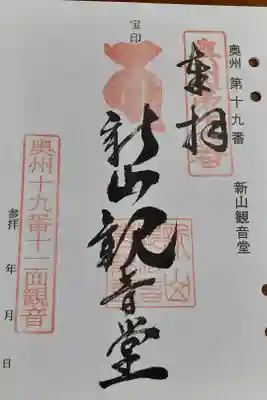 奥州 第十九番
新山観音堂
奉拝
宝印
新山観音堂
奥州十九番十一面観音
参拝 年 月 日